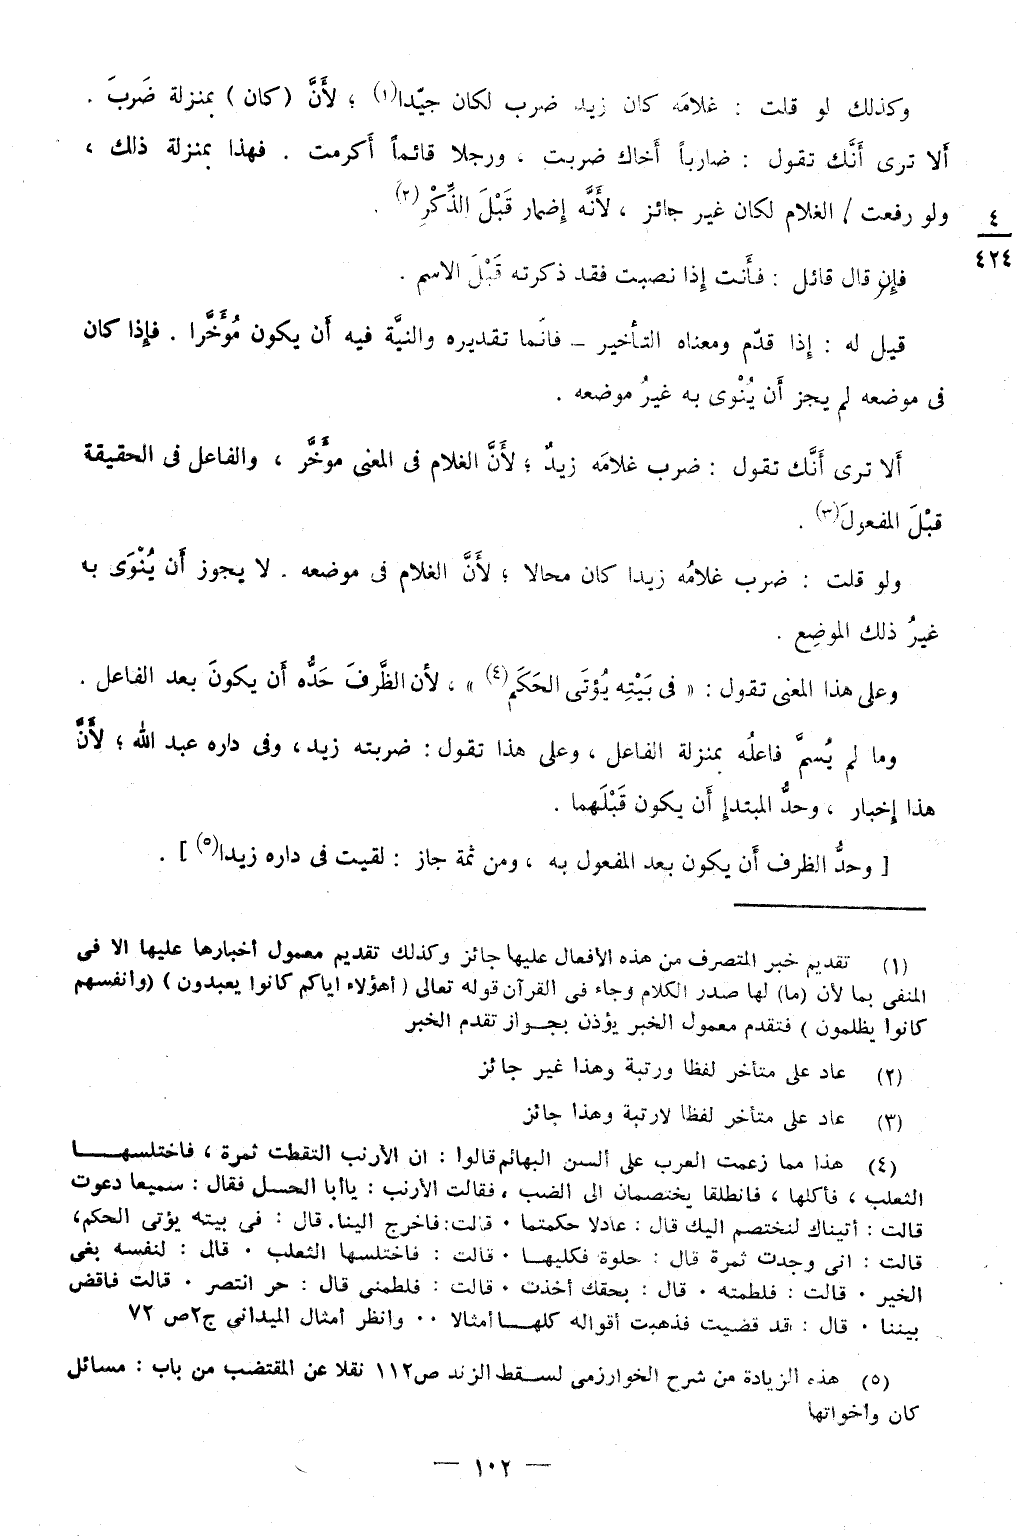 وكذلك لو قلت : غلامَه كان زيد ضرب لكان جيّدا(١) ؛ لأَنَّ (كان) بمنزلة ضَربَ .
ألا ترى أَنَّك تقول : ضارباً أَخاك ضربت ، ورجلا قائماً أَكرمت . فهذا بمنزلة ذلك ،
ولو رفعت / الغلام لكان غير جائز ، لأَنَّه إضمار قَبْلَ الذِّكْرِ(٢) .
٤
٤٢٤
فإِن قال قائل : فأَنت إِذا نصبت فقد ذكرته قَبْلَ الاسم .
قيل له : إِذا قدّم ومعناه التأخير – فانَّما تقديره والنيَّة فيه أَن يكون مُؤَخَّرا . فإِذا كان
فى موضعه لم يجز أَن يُنْوى به غيرُ موضعه .
أَلا ترى أَنَّك تقول : ضرب غلامَه زيدٌ ؛ لأَنَّ الغلام فى المعنى مؤَخَّر ، والفاعل فى الحقيقة
قبْلَ المفعول(٣) .
ولو قلت : ضرب غلامُه زيدا كان محالا ؛ لأَنَّ الغلام فى موضعه . لا يجوز أَن يُنْوَى به
غيرُ ذلك الموضِع .
وعلى هذا المعنى تقول : « فى بَيْتِه يُؤتَى الحَكَم(٤) » ، لأن الظَّرفَ حَدُّه أَن يكونَ بعد الفاعل .
وما لم يُسمَّ فاعلُه بمنزلة الفاعل ، وعلى هذا تقول : ضربته زيد ، وفى داره عبد الله ؛ لأَنَّ
هذا إِخبار ، وحدُّ المبتدإِ أَن يكون قَبْلَهما .
[ وحدُّ الظرف أَن يكون بعد المفعول به ، ومن ثمة جاز : لقيت فى داره زيدا(٥) ] .
(١) تقديم خبر المتصرف من هذه الأفعال عليها جائز وكذلك تقديم معمول أخبارها عليها الا فى
المنفى بما لأن (ما) لها صدر الكلام وجاء فى القرآن قوله تعالى ( أهؤلاء اياكم كانوا يعبدون ) (وأنفسهم
كانوا يظلمون ) فتقدم معمول الخبر يؤذن بجواز تقدم الخبر
(٢) عاد على متأخر لفظا ورتبة وهذا غير جائز
(٣) عاد على متأخر لفظا لارتبة وهذا جائز
(٤) هذا مما زعمت العرب على ألسن البهائم قالوا : ان الأرنب التقطت ثمرة ، فاختلسها
الثعلب ، فأكلها ، فانطلقا يختصمان الى الضب ، فقالت الأرنب : ياأبا الحسل فقال : سميعا دعوت
قالت : أتيناك لنختصم اليك قال : عادلا حكمتما . قالت : فاخرج الينا. قال : فى بيته يؤتى الحكم،
قالت : انى وجدت ثمرة قال : حلوة فكليها . قالت : فاختلسها الثعلب . قال : لنفسه بغى
الخير . قالت : فلطمته . قال : بحقك أخذت . قالت : فلطمنى قال : حر انتصر . قالت فاقض
بيننا . قال : قد قضيت فذهبت أقواله كلها أمثالا .. وانظر أمثال الميدانى ج٢ص ٧٢
(٥) هذه الزيادة من شرح الخوارزمى لسقط الزند ص١١٢ نقلا عن المقتضب من باب : مسائل
كان وأخواتها
— ١٠٢ —